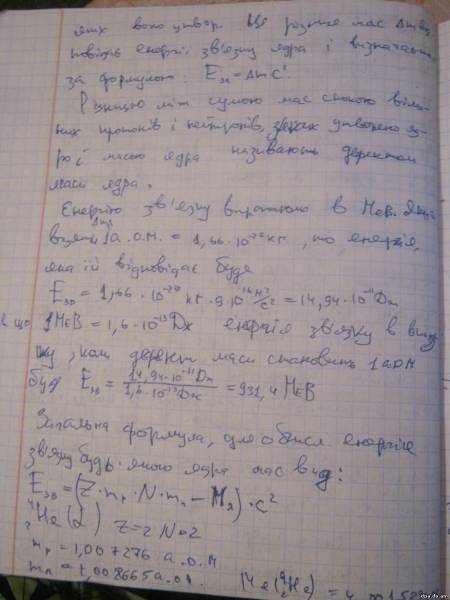 яких воно утвор. Ця різниця мас Δm
повідає енергії зв'язку ядра і визначаєть
за формулою: Eзв = Δm c²
Різницю між сумою мас спокою віль-
них протонів і нейтронів, з яких утворено яд-
ро і масою ядра називають дефектом
маси ядра.
Енергію зв'язку виражають в МеВ. Якщо
взяти Δm 1 а.о.м. = 1,66·10⁻²⁷ кг, то енергія,
яка їй відповідає буде
Eзв = 1,66·10⁻²⁷ кг·9·10¹⁶ м²/с² = 14,94·10⁻¹¹ Дж
що 1МеВ = 1,6·10⁻¹³ Дж енергія зв'язку в випад
ку, коли дефект маси становить 1 а.о.м
буде Eзв = 14,94·10⁻¹¹Дж / 1,6·10⁻¹³Дж = 931,4 МеВ
Загальна формула, для обчисл енергіє
зв'язку будь-якого ядра має вид:
Eзв = (Z·mp·N·mn − Mя)·c²
⁴₂He(α) Z=2 N=2
mp = 1,007276 а.о.м
mn = 1,008665 а.о.м.